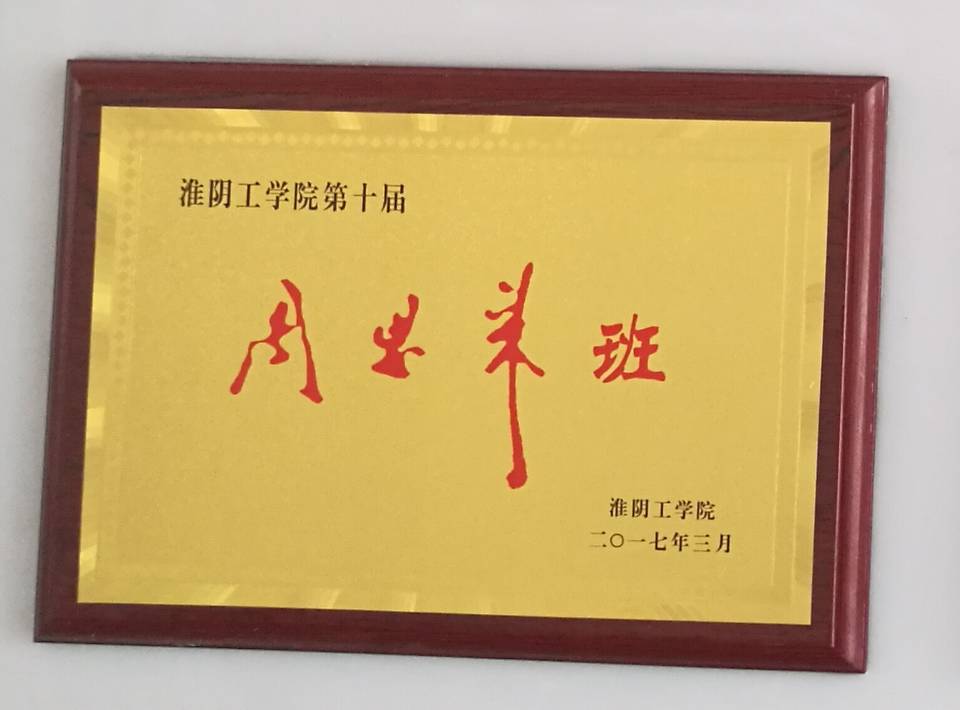 淮阴工学院第十届
周恩来班
淮阴工学院
二〇一七年三月